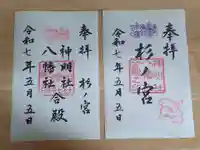 奉拝
杉ノ宮
神明社
八幡社
合殿
令和七年五月五日
奉拝
杉ノ宮
令和七年五月五日